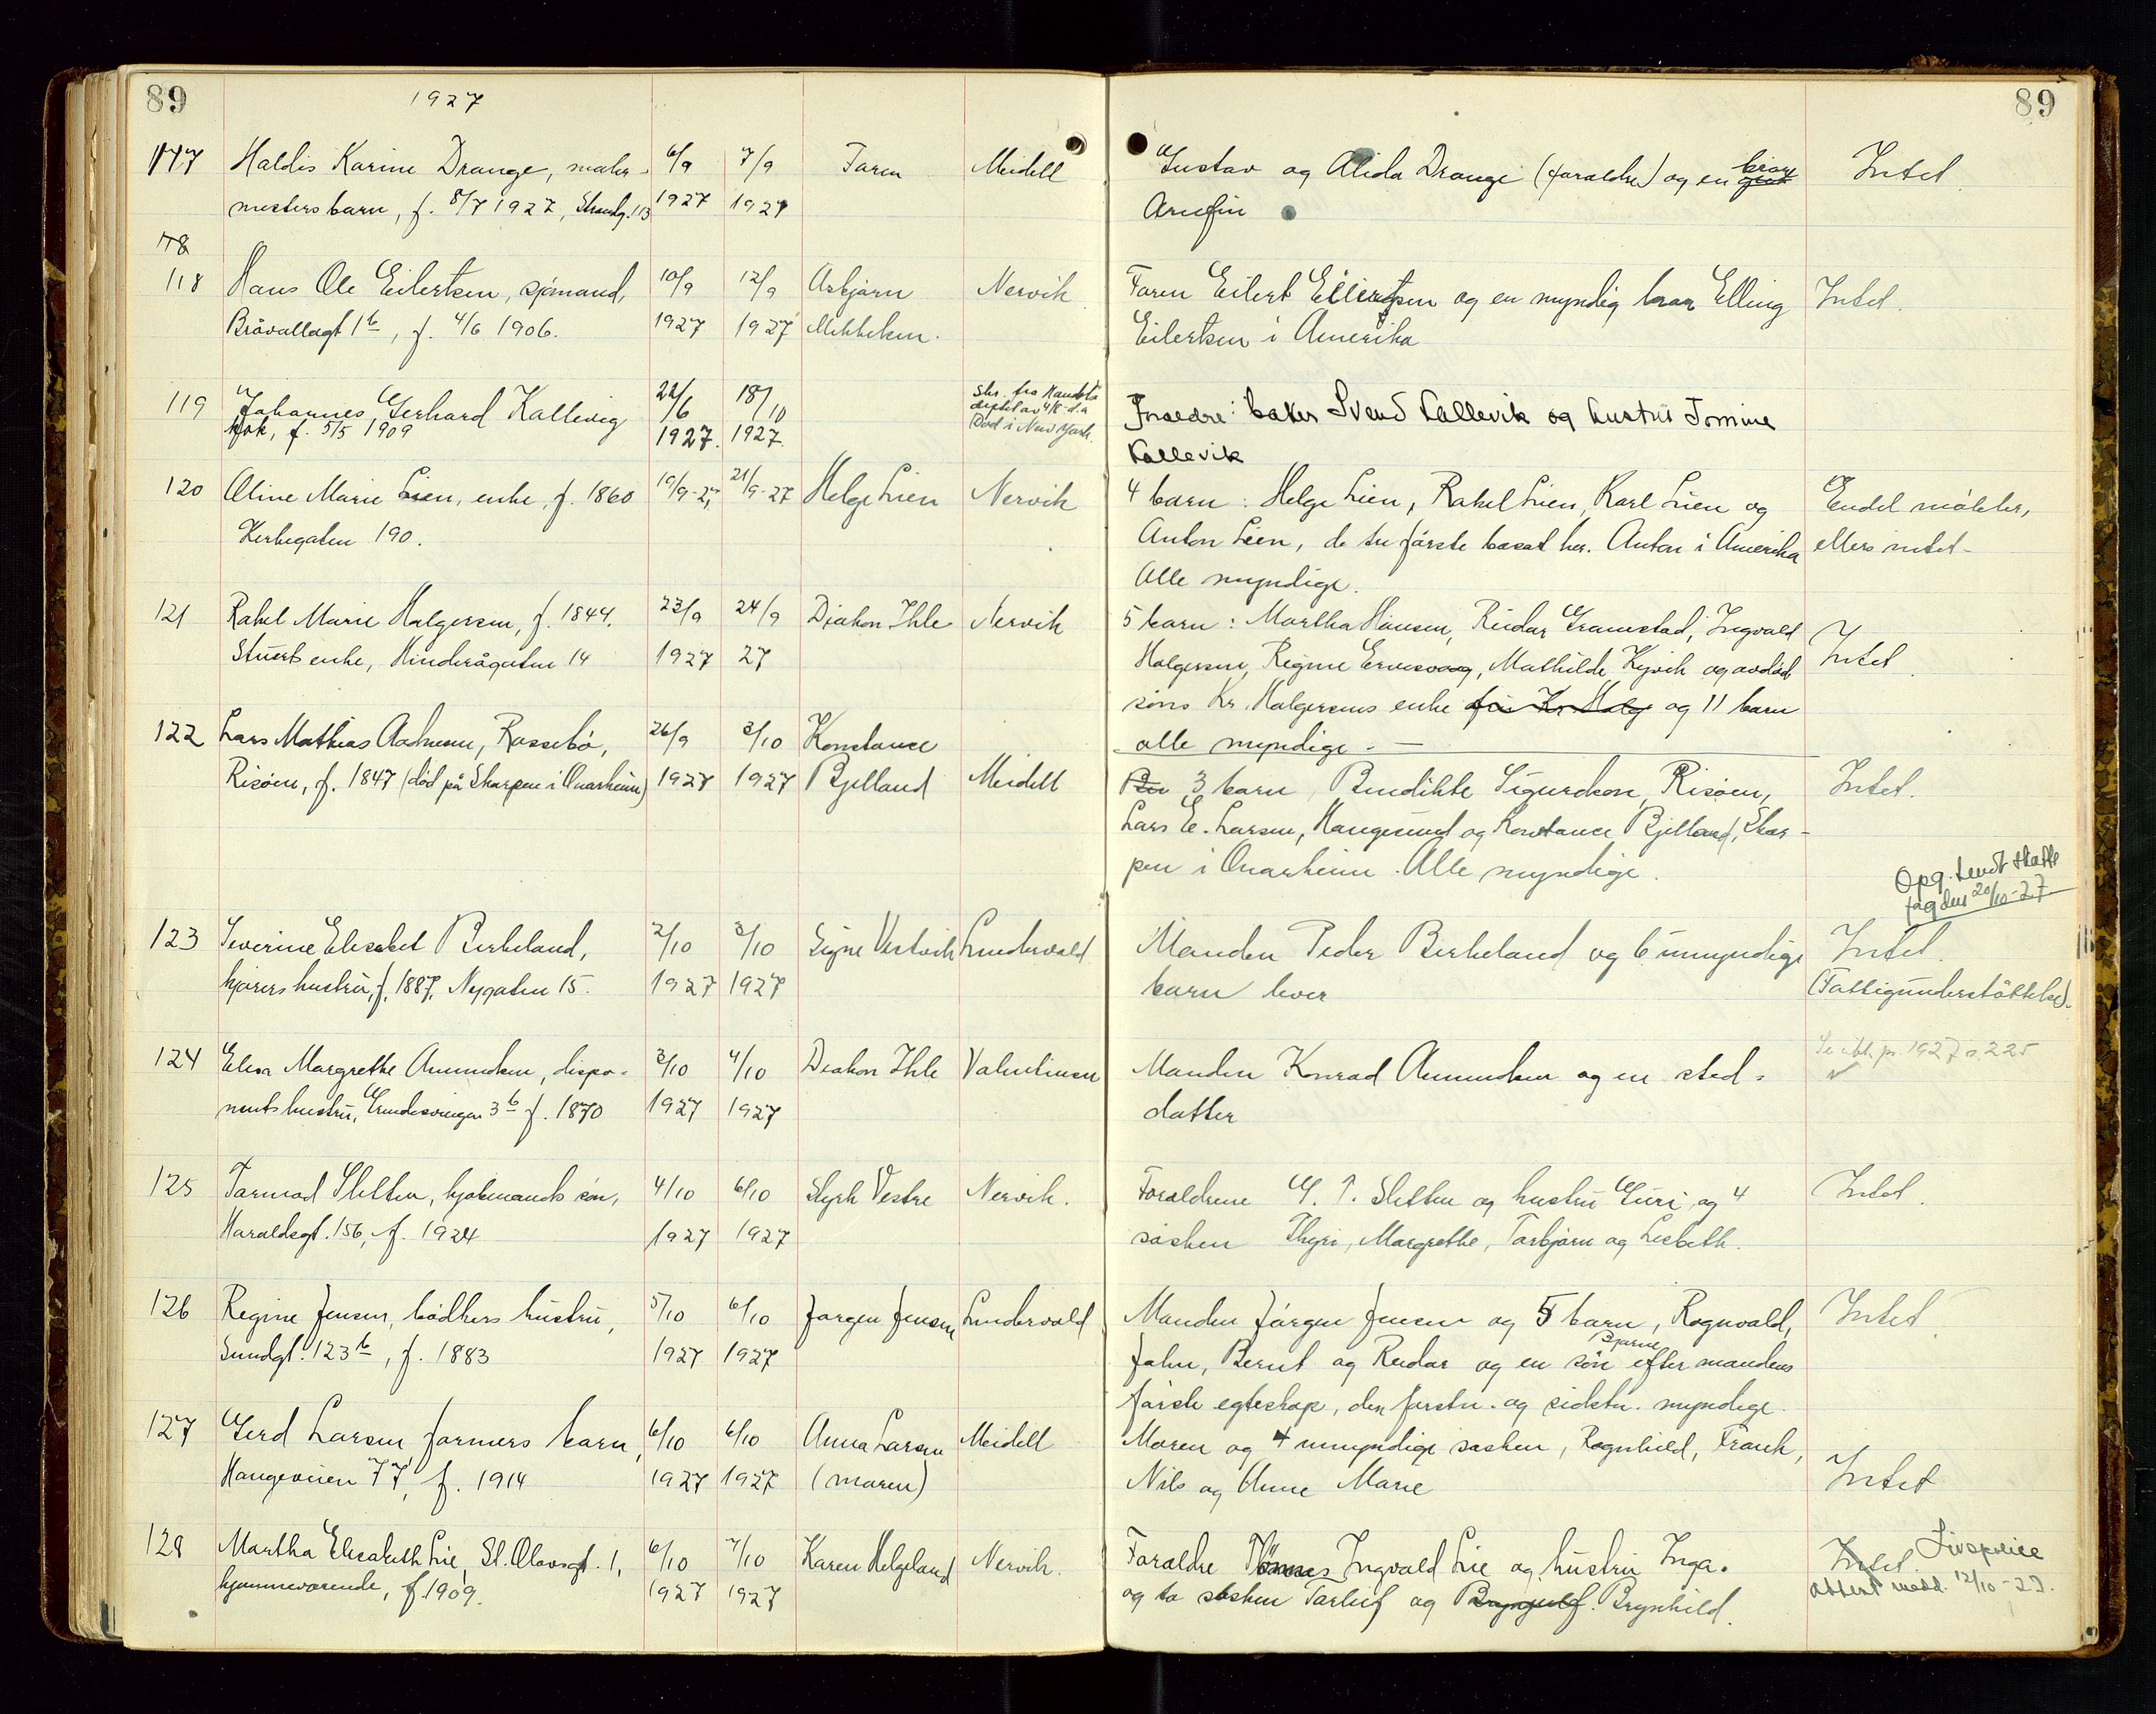 89
1927
89
117 Haldis Karine Drange, maler- 6/9 7/9 Faren Meidell Gustav og Alida Drange (foraldre) og en bror Intet
mesters barn, f. 8/7 1927, Strandg. 113 1927 1927 Arnfin
118
118 Hans Ole Eilertsen, sjømand, 10/9 12/9 Asbjørn Nervik Faren Eilert Eilertsen og en myndig bror Elling Intet.
Bråvallagt 1b, f. 4/6 1906. 1927 1927 Mikkelsen. Eilertsen i Amerika
119 Johannes Gerhard Kallevig 22/6 18/10 Skr. fra Handels
dept av 4/8 d.a
kok, f. 5/5 1909 1927. 1927. Død i New York.
Foraldre: baker Svend Kallevik og hustru Tomine
Kallevik
120 Oline Marie Lien, enke, f. 1860 19/9-27, 21/9-27 Helge Lien Nervik 4 barn: Helge Lien, Rakel Lien, Karl Lien og Endel møbler,
Kirkegaten 190. Anton Lien, de tre første bosat her. Anton i Amerika ellers intet-
Alle myndige.
121 Rakel Marie Halgersen, f. 1844. 23/9 24/9 Diakon Ihle Nervik 5 barn: Martha Hansen, Reidar Gramstad, Ingvald
Stuerts enke, Hinderågaten 14 1927 27 Holgersen, Regine Ervesvaag, Mathilde Kyvik og avdød Intet
søns Kr. Halgersens enke fru Kr. Holg og 11 barn
alle myndige.-
122 Lars Mathias Aahnesen, Rossebø, 26/9 3/10 Konstance
Risøen, f. 1847 (død på Skarpen i Onarheim) 1927 1927 Bjelland Meidell 3 barn, Bendikte Sigurdson, Risøen, Intet.
Lars E. Larsen, Haugesund og Konstance Bjelland, Skar-
pen i Onarheim. Alle myndige.
Opg. sendt skatte
fogden 20/10-27
123 Severine Elisabet Birkeland, 2/10 3/10 Signe Vestvik Lindervold Manden Peder Birkeland og 6 umyndige Intet.
kjørers hustru, f. 1887, Nygaten 15. 1927 1927 barn lever (Fattigunderstøttelse).
124 Elisa Margrethe Amundsen, dispo- 3/10 4/10 Diakon Ihle Valentinsen Manden Konrad Amundsen og en sted- 1927 s. 225
nents hustru, Grindesvingen 3b f. 1870 1927 1927 datter
125 Tormod Sletten, kjøbmands søn, 4/10 6/10 Styrk Vestre Nervik. Foraldrene G. T. Sletten og hustru Guri, og 4 Intet.
Haraldsgt. 156, f. 1924 1927 1927 søsken Thyri, Margrethe, Torbjørn og Lisbeth.
126 Regine Jensen, bødkers hustru, 5/10 6/10 Jørgen Jensen Lindervold Manden Jørgen Jensen og 5 barn, Rognvald, Intet
Sundgt. 123b, f. 1883 1927 1927 John, Bernt og Reidar og en søn Bjarne efter mandens
første egteskap, den førstn. og sidstn. myndige.
127 Gerd Larsen farmers barn, 6/10 6/10 Anna Larsen Meidell Moren og 4 umyndige søsken, Rognhild, Frank,
Haugeveien 77, f. 1914 1927 1927 (moren) Nils og Anne Marie Intet
128 Martha Elisabeth Lie, St. Olavsgt. 1, 6/10 7/10 Karen Helgeland Nervik. Foraldre Tönnes Ingvald Lie og hustru Inga. Intet. Livspolice
hjemmevørende, f. 1909. 1927 1927 og to søsken Torleif og Bryngulf. Brynhild. attest medd. 12/10-27.